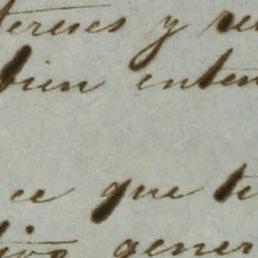 tereses y re
bien enten
ce que te
tivo gener